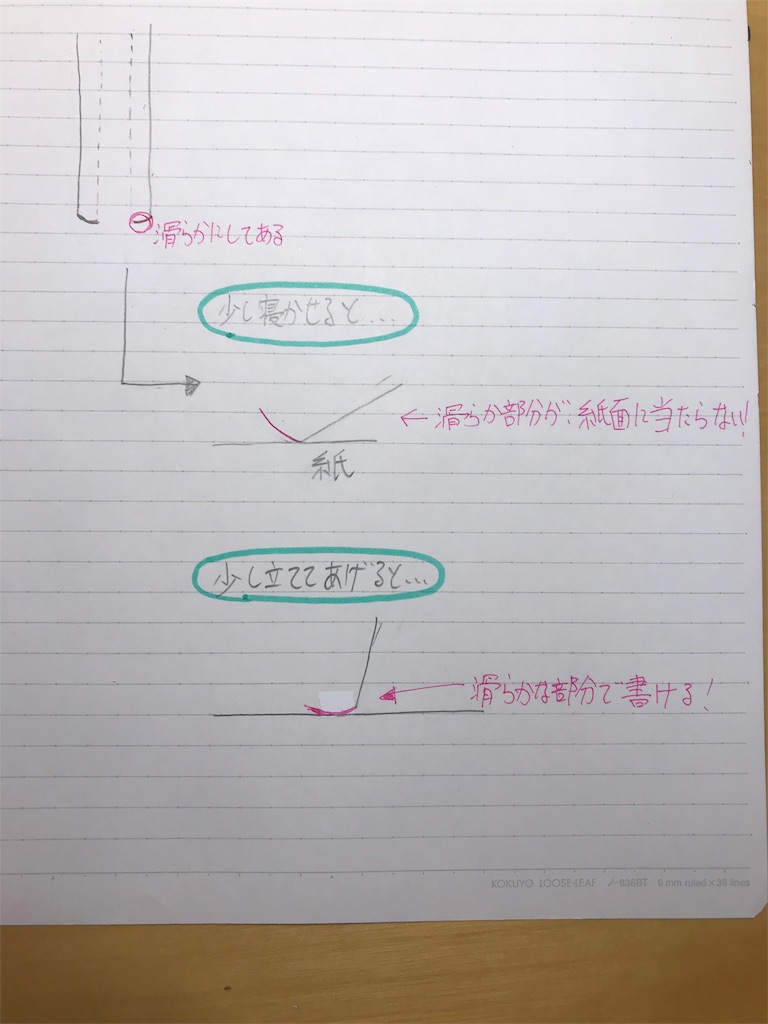 滑らかにしてある
少し寝かせると....
← 滑らか部分が、紙面に当たらない!
紙
少し立ててあげると...
滑らかな部分で書ける!
KOKUYO LOOSE-LEAF ノ-836BT 6 mm ruled×36 lines